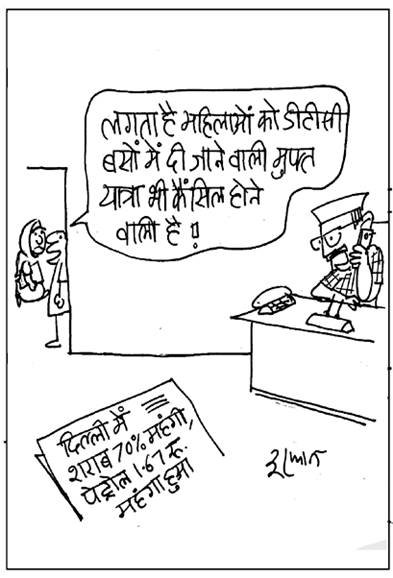 लगता है महिलाओं को डीटीसी
बसों में दी जाने वाली मुफ्त
यात्रा भी कैंसिल होने
वाली है !!
दिल्ली में
शराब 70% महंगी,
पेट्रोल 1.67 रु.
महंगा हुआ